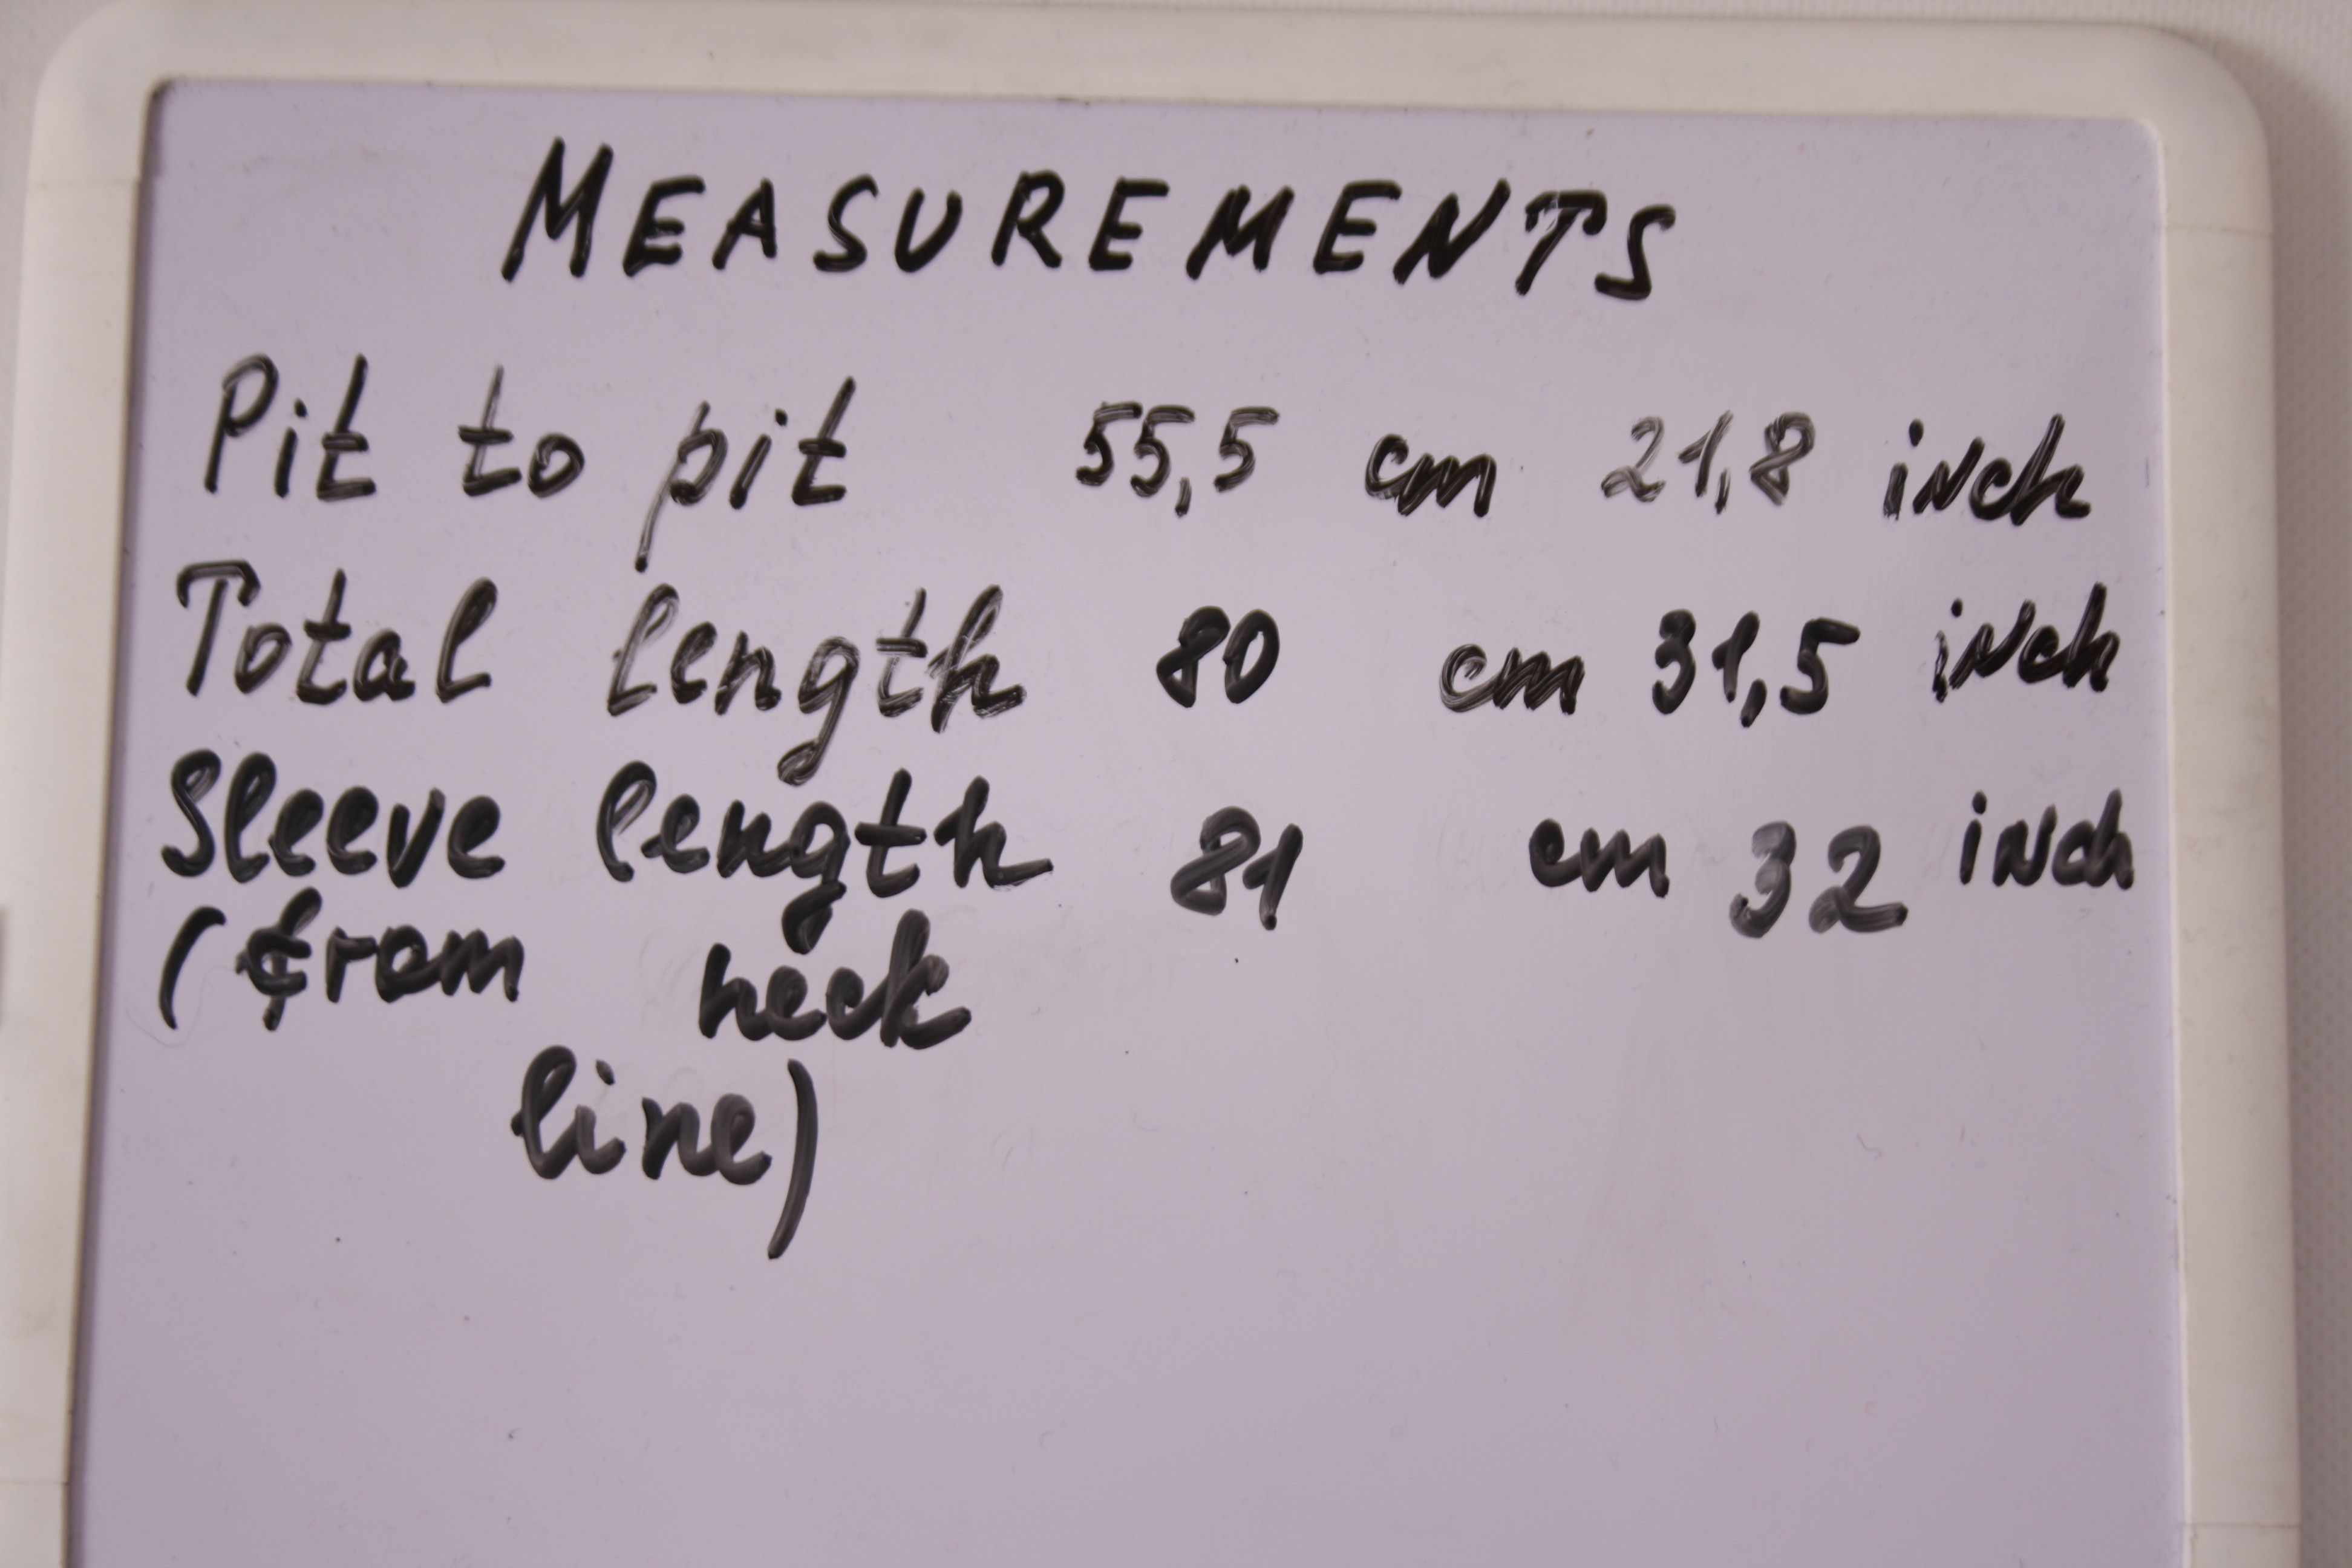 MEASUREMENTS
Pit to pit 55,5 cm 21,8 inch
Total length 80 cm 31,5 inch
Sleeve length 81 cm 32 inch
(from neck
line)